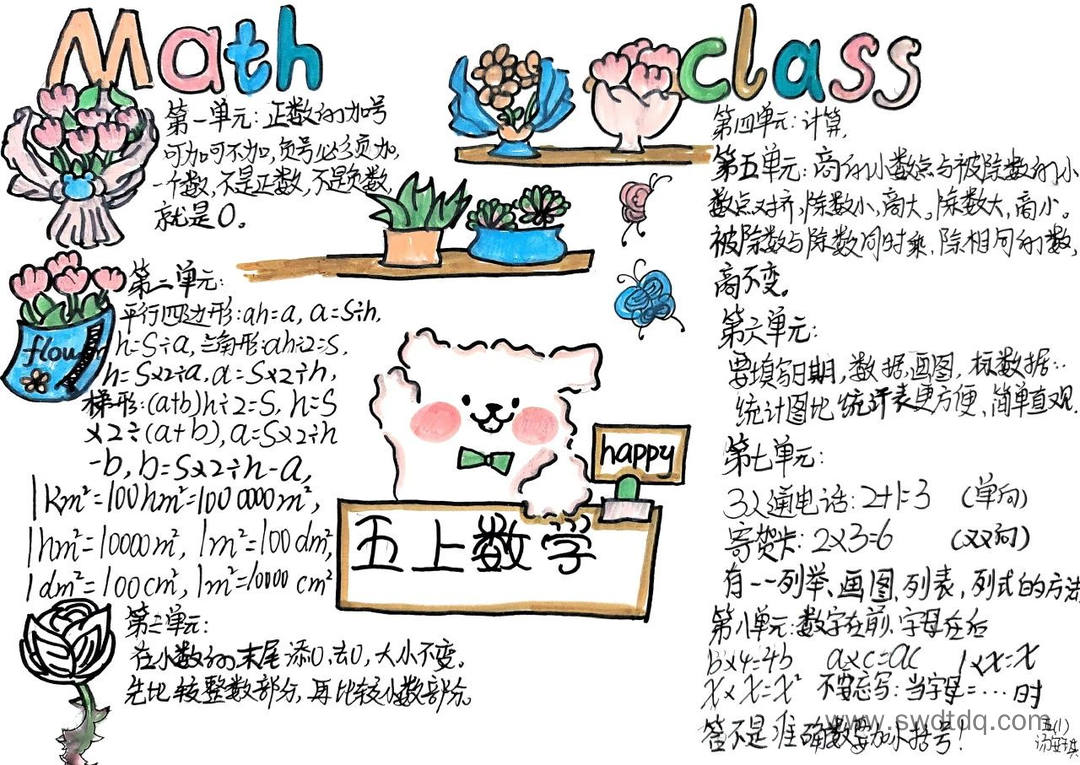 Math class
第一单元:正数的加号
可加可不加,负号必须负加,
一个数,不是正数,不是负数,
就是0。
第二单元:
平行四边形:ah=a, a=S÷h,
h=S÷a,三角形:ah÷2=S,
h=S×2÷a,a=S×2÷h,
梯形:(a+b)h÷2=S, h=S
×2÷(a+b),a=S×2÷h
-b,b=S×2÷h-a,
1Km²=100hm²=1000000m²,
1hm²=10000m², 1m²=100dm²,
1dm²=100cm², 1m²=10000cm²
第三单元:
在小数的末尾添0,去0,大小不变。
先比较整数部分,再比较小数部分。
flower
happy
五上数学
第四单元:计算,
第五单元:商的小数点与被除数的小
数点对齐,除数小,商大。除数大,商小。
被除数与除数同时乘、除相同的数,
商不变。
第六单元:
要填写日期,数据,画图,标数据…
统计图比统计表更方便,简单直观。
第七单元:
3人通电话:2+1=3 (单向)
寄贺卡:2×3=6 (双向)
有一一列举、画图、列表,列式的方法
第八单元:数字在前,字母在后
b×4=4b a×c=ac 1×x=x
x×x=x² 不要忘写:当字母=…时
答不是准确数要加小括号!
www.swdtdq.com
五(1)